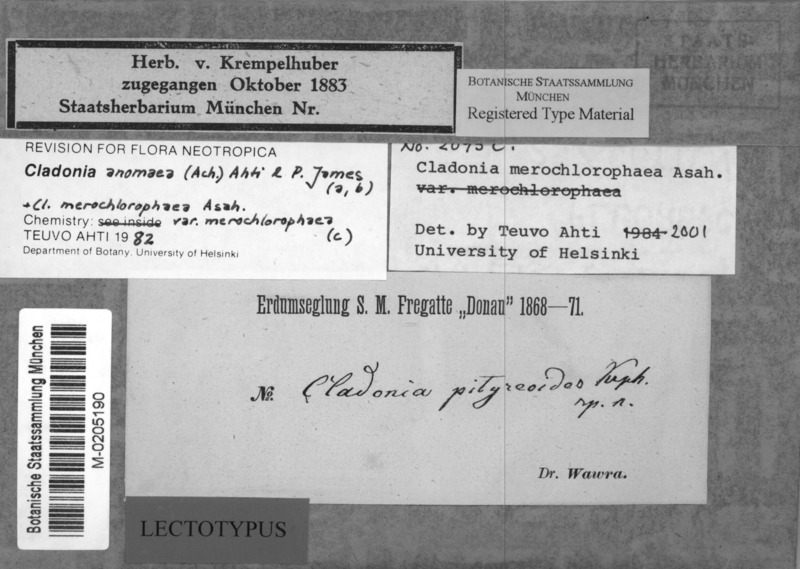 Herb. v. Krempelhuber
zugegangen Oktober 1883
Staatsherbarium München Nr.
BOTANISCHE STAATSSAMMLUNG
MÜNCHEN
Registered Type Material
REVISION FOR FLORA NEOTROPICA
Cladonia anomaea (Ach.) Ahti & P. James
(a, b)
+Cl. merochlorophaea Asah.
Chemistry: see inside var. merochlorophaea
TEUVO AHTI 1982 (c)
Department of Botany, University of Helsinki
No. 2075 C.
Cladonia merochlorophaea Asah.
var. merochlorophaea
Det. by Teuvo Ahti 1984 2001
University of Helsinki
Erdumseglung S. M. Fregatte „Donau" 1868—71.
No. Cladonia pityreoides Krph.
sp. n.
Dr. Wawra.
Botanische Staatssammlung München
M-0205190
LECTOTYPUS